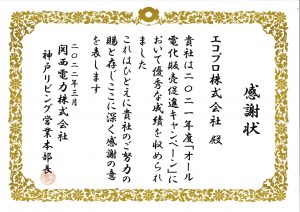 感謝状
エコプロ株式会社 殿
貴社は二〇二一年度「オール
電化販売促進キャンペーン」に
おいて優秀な成績を収められ
ました
これはひとえに貴社のご努力の
賜と存じここに深く感謝の意
を表します
二〇二二年三月
関西電力株式会社
神戸リビング営業本部長